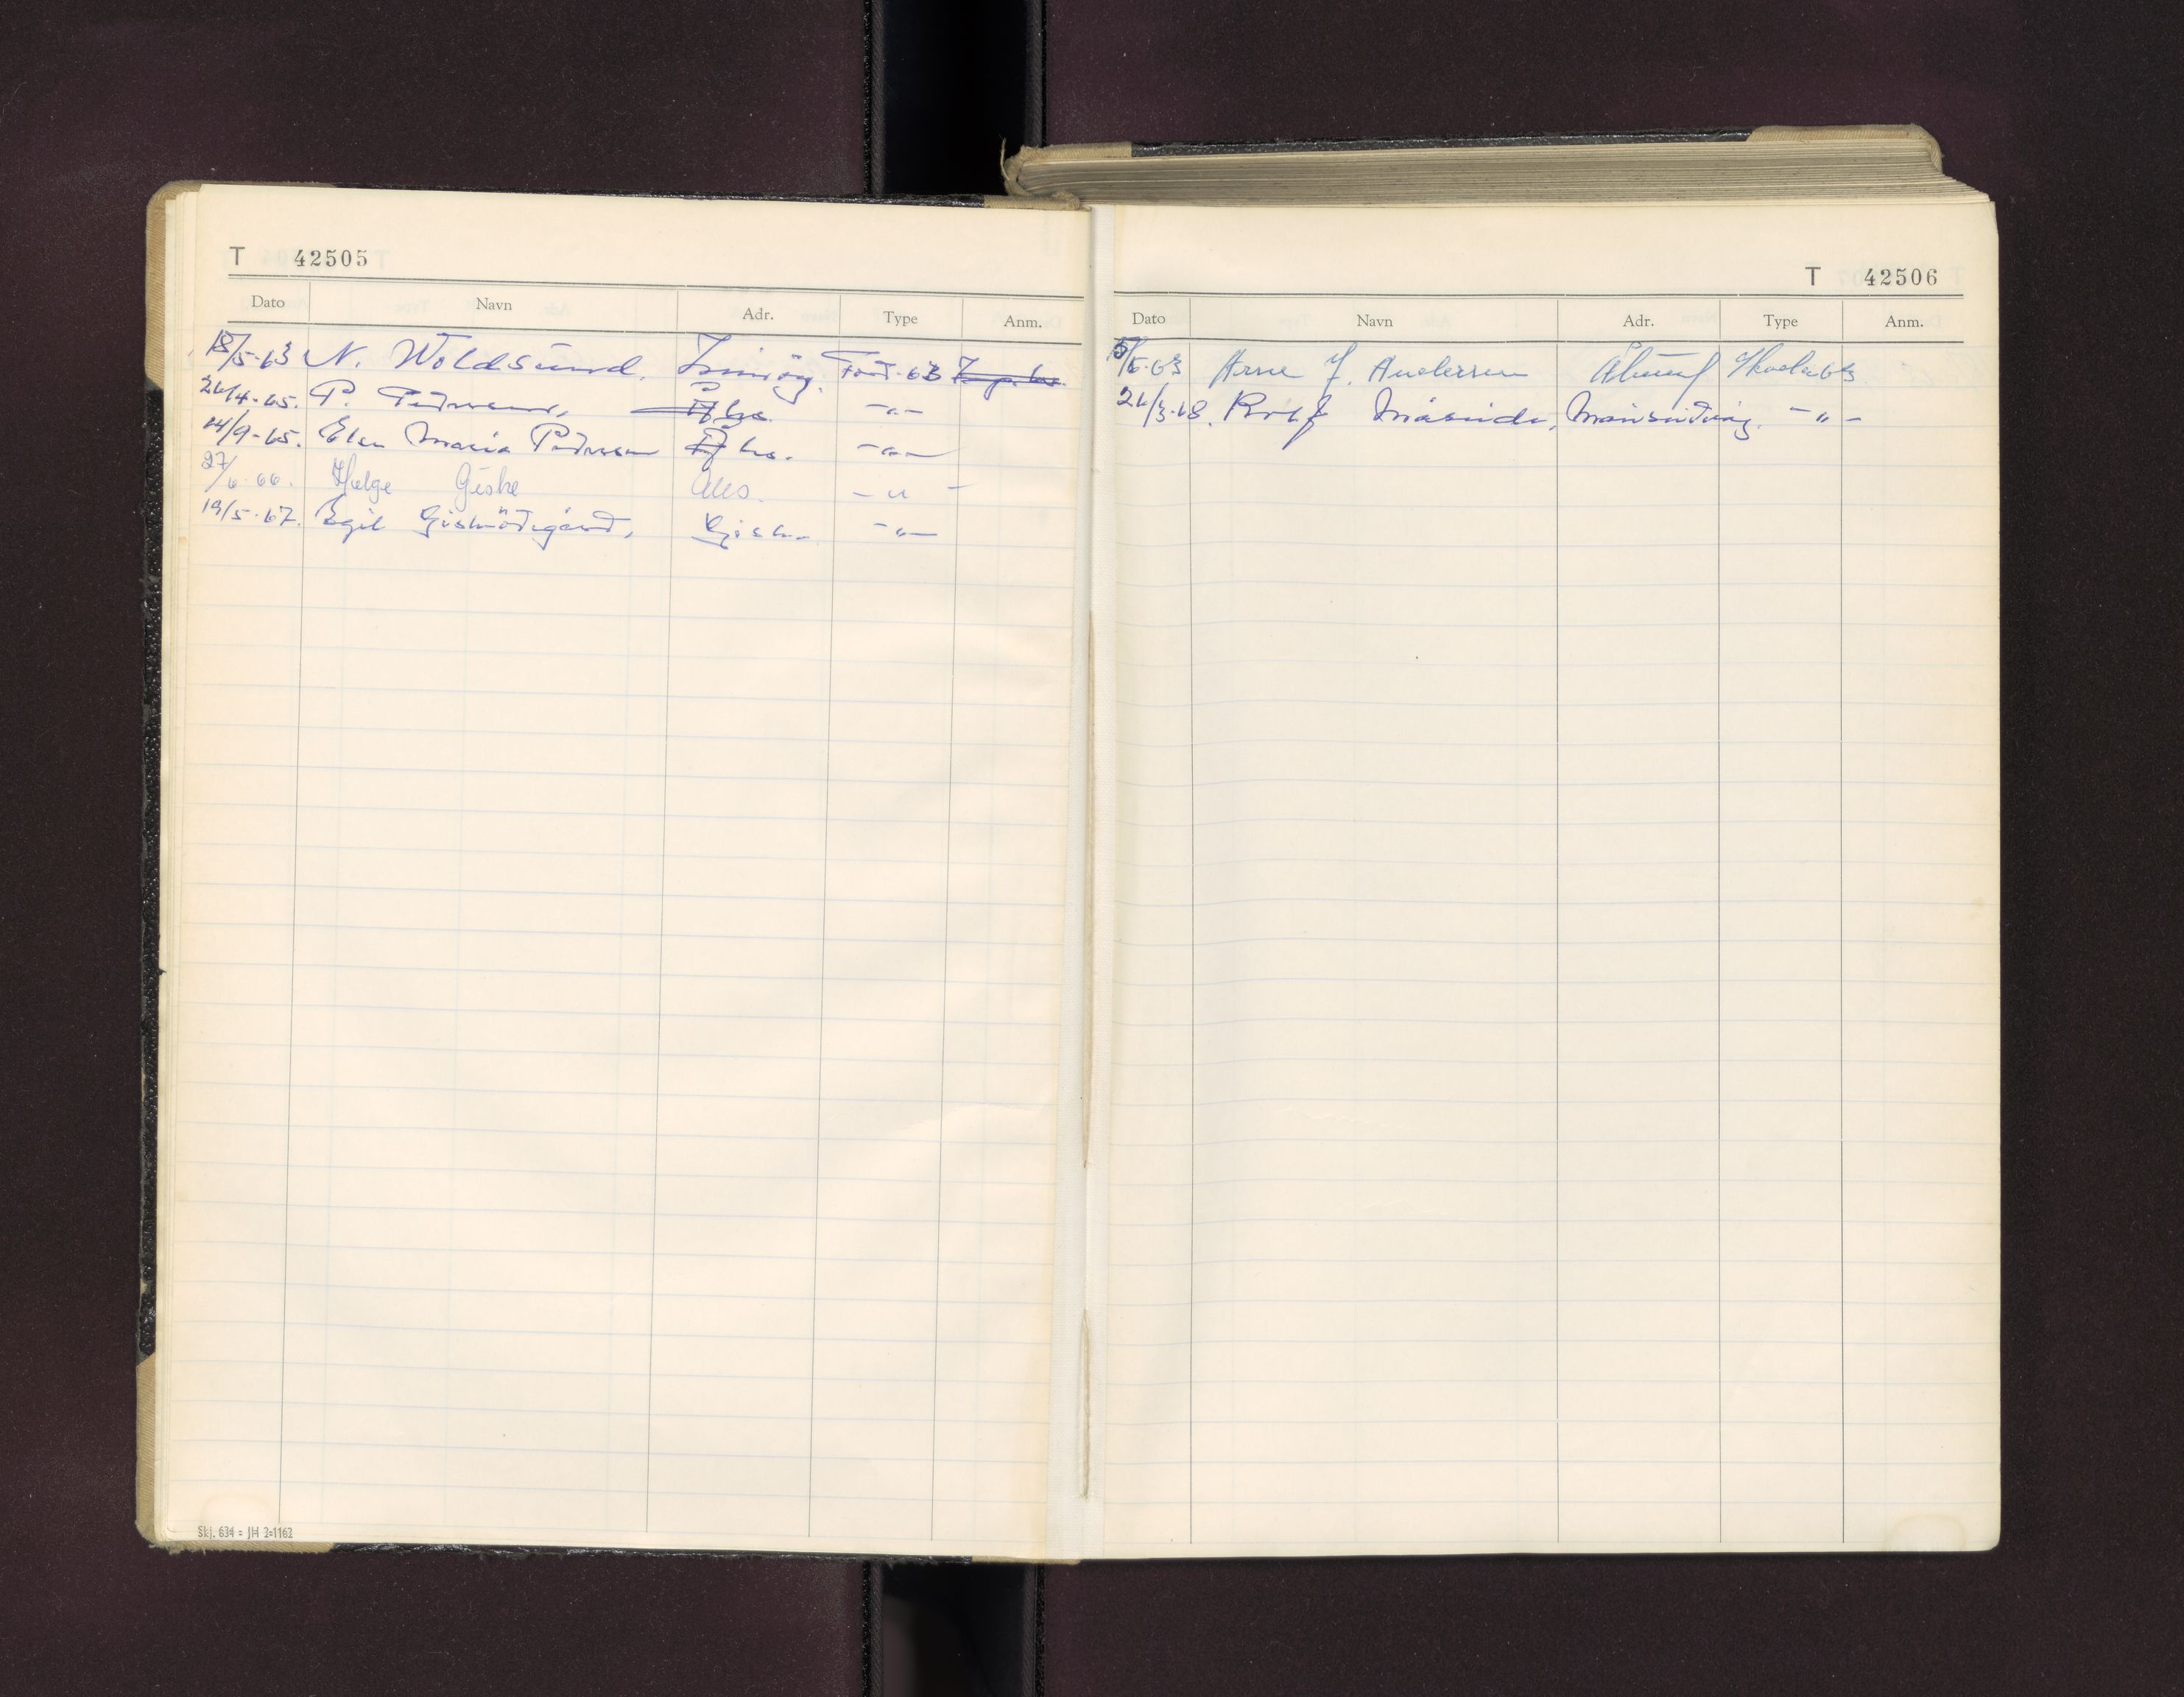 T 42505
Dato Navn Adr. Type Anm.
18/5-63 N. Woldsund. Ford-63
26/4-65. P. Pedersen, Åles. -"-
14/9-65. Else Maria Pedersen Åles. -"-
27/6-66. Helge Giske Ales. -"-
19/5-67. Egil Giskeødegård, Giske. -"-
Skj. 634 = JH 2-1162
T 42506
Dato Navn Adr. Type Anm.
5/6-63 Arne J. Andersen Ålesund Skoda 63
26/3-68. Rolf Måseide, -"-